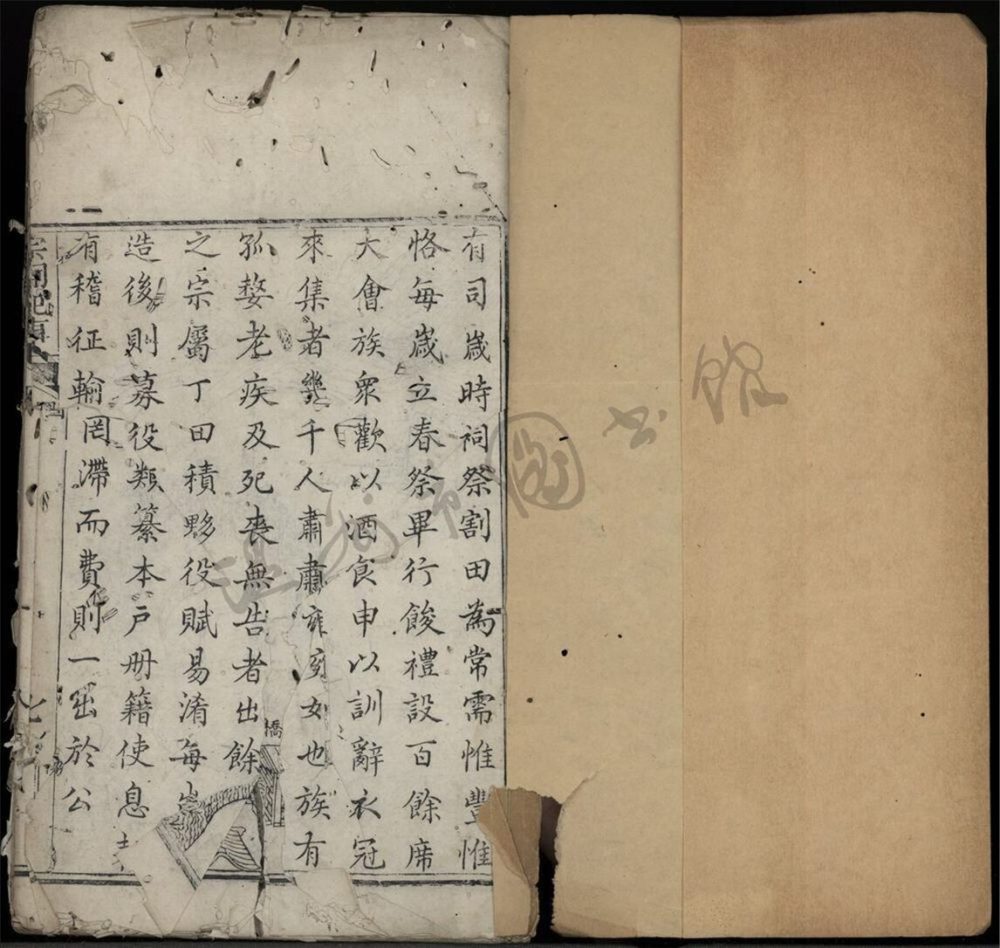 有司歲時祠祭割田為常需惟豐惟
恪每歲立春祭畢行餕禮設百餘席
大會族衆歡以酒食申以訓辭衣冠
來集者幾千人肅肅雍雍如也族有
孤嫠老疾及死喪無告者出餘
之宗屬丁田積夥役賦易淆每
造後則募役類纂本戶冊籍使息
有稽征輸罔滯而費則一出於公
橋
温州市圖书館